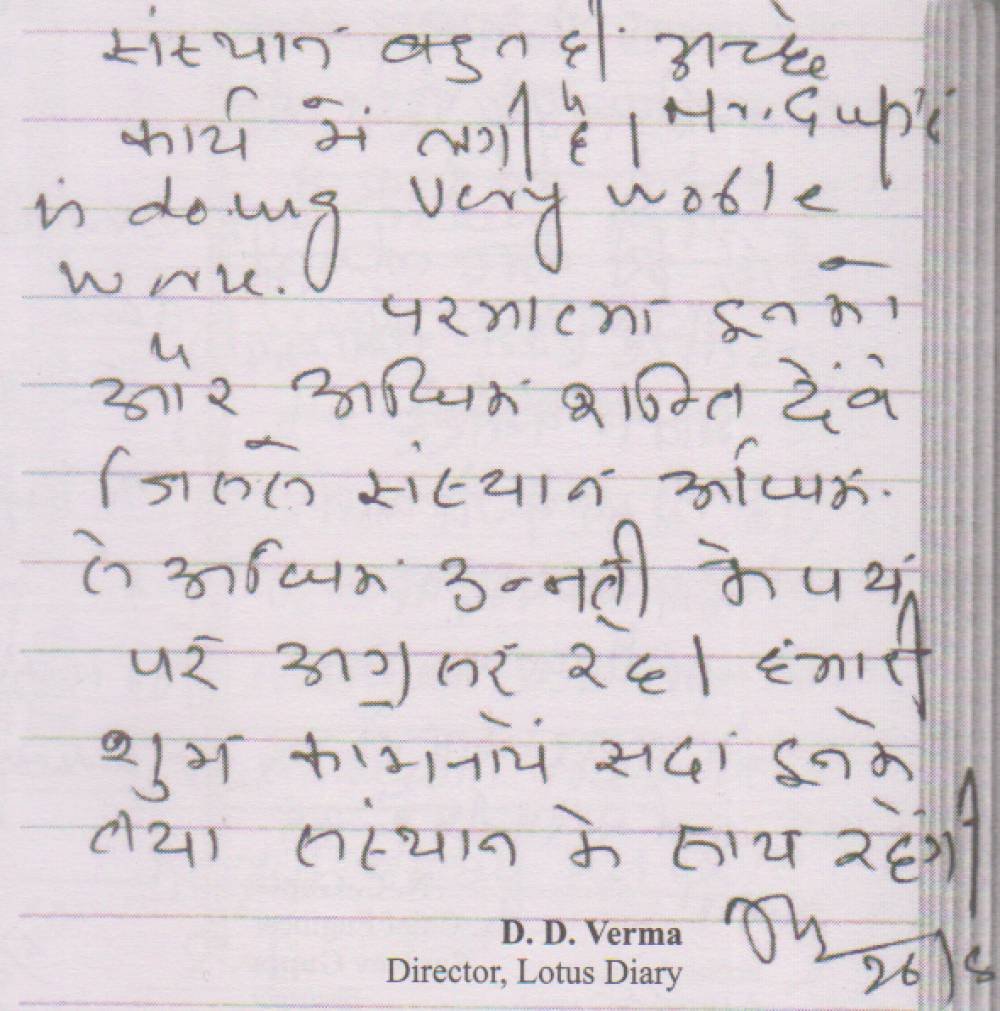 संस्थान बहुत ही अच्छे
कार्य में लगी है। Mr. Gupta
is doing very noble
work.
परमात्मा इनको
और अधिक शक्ति देवे
जिससे संस्थान अधिक
से अधिक उन्नती के पथ
पर अग्रसर रहे। हमारी
शुभ कामनायें सदा इनके
तथा संस्थान के साथ रहेंगी
D. D. Verma
Director, Lotus Diary
26/8